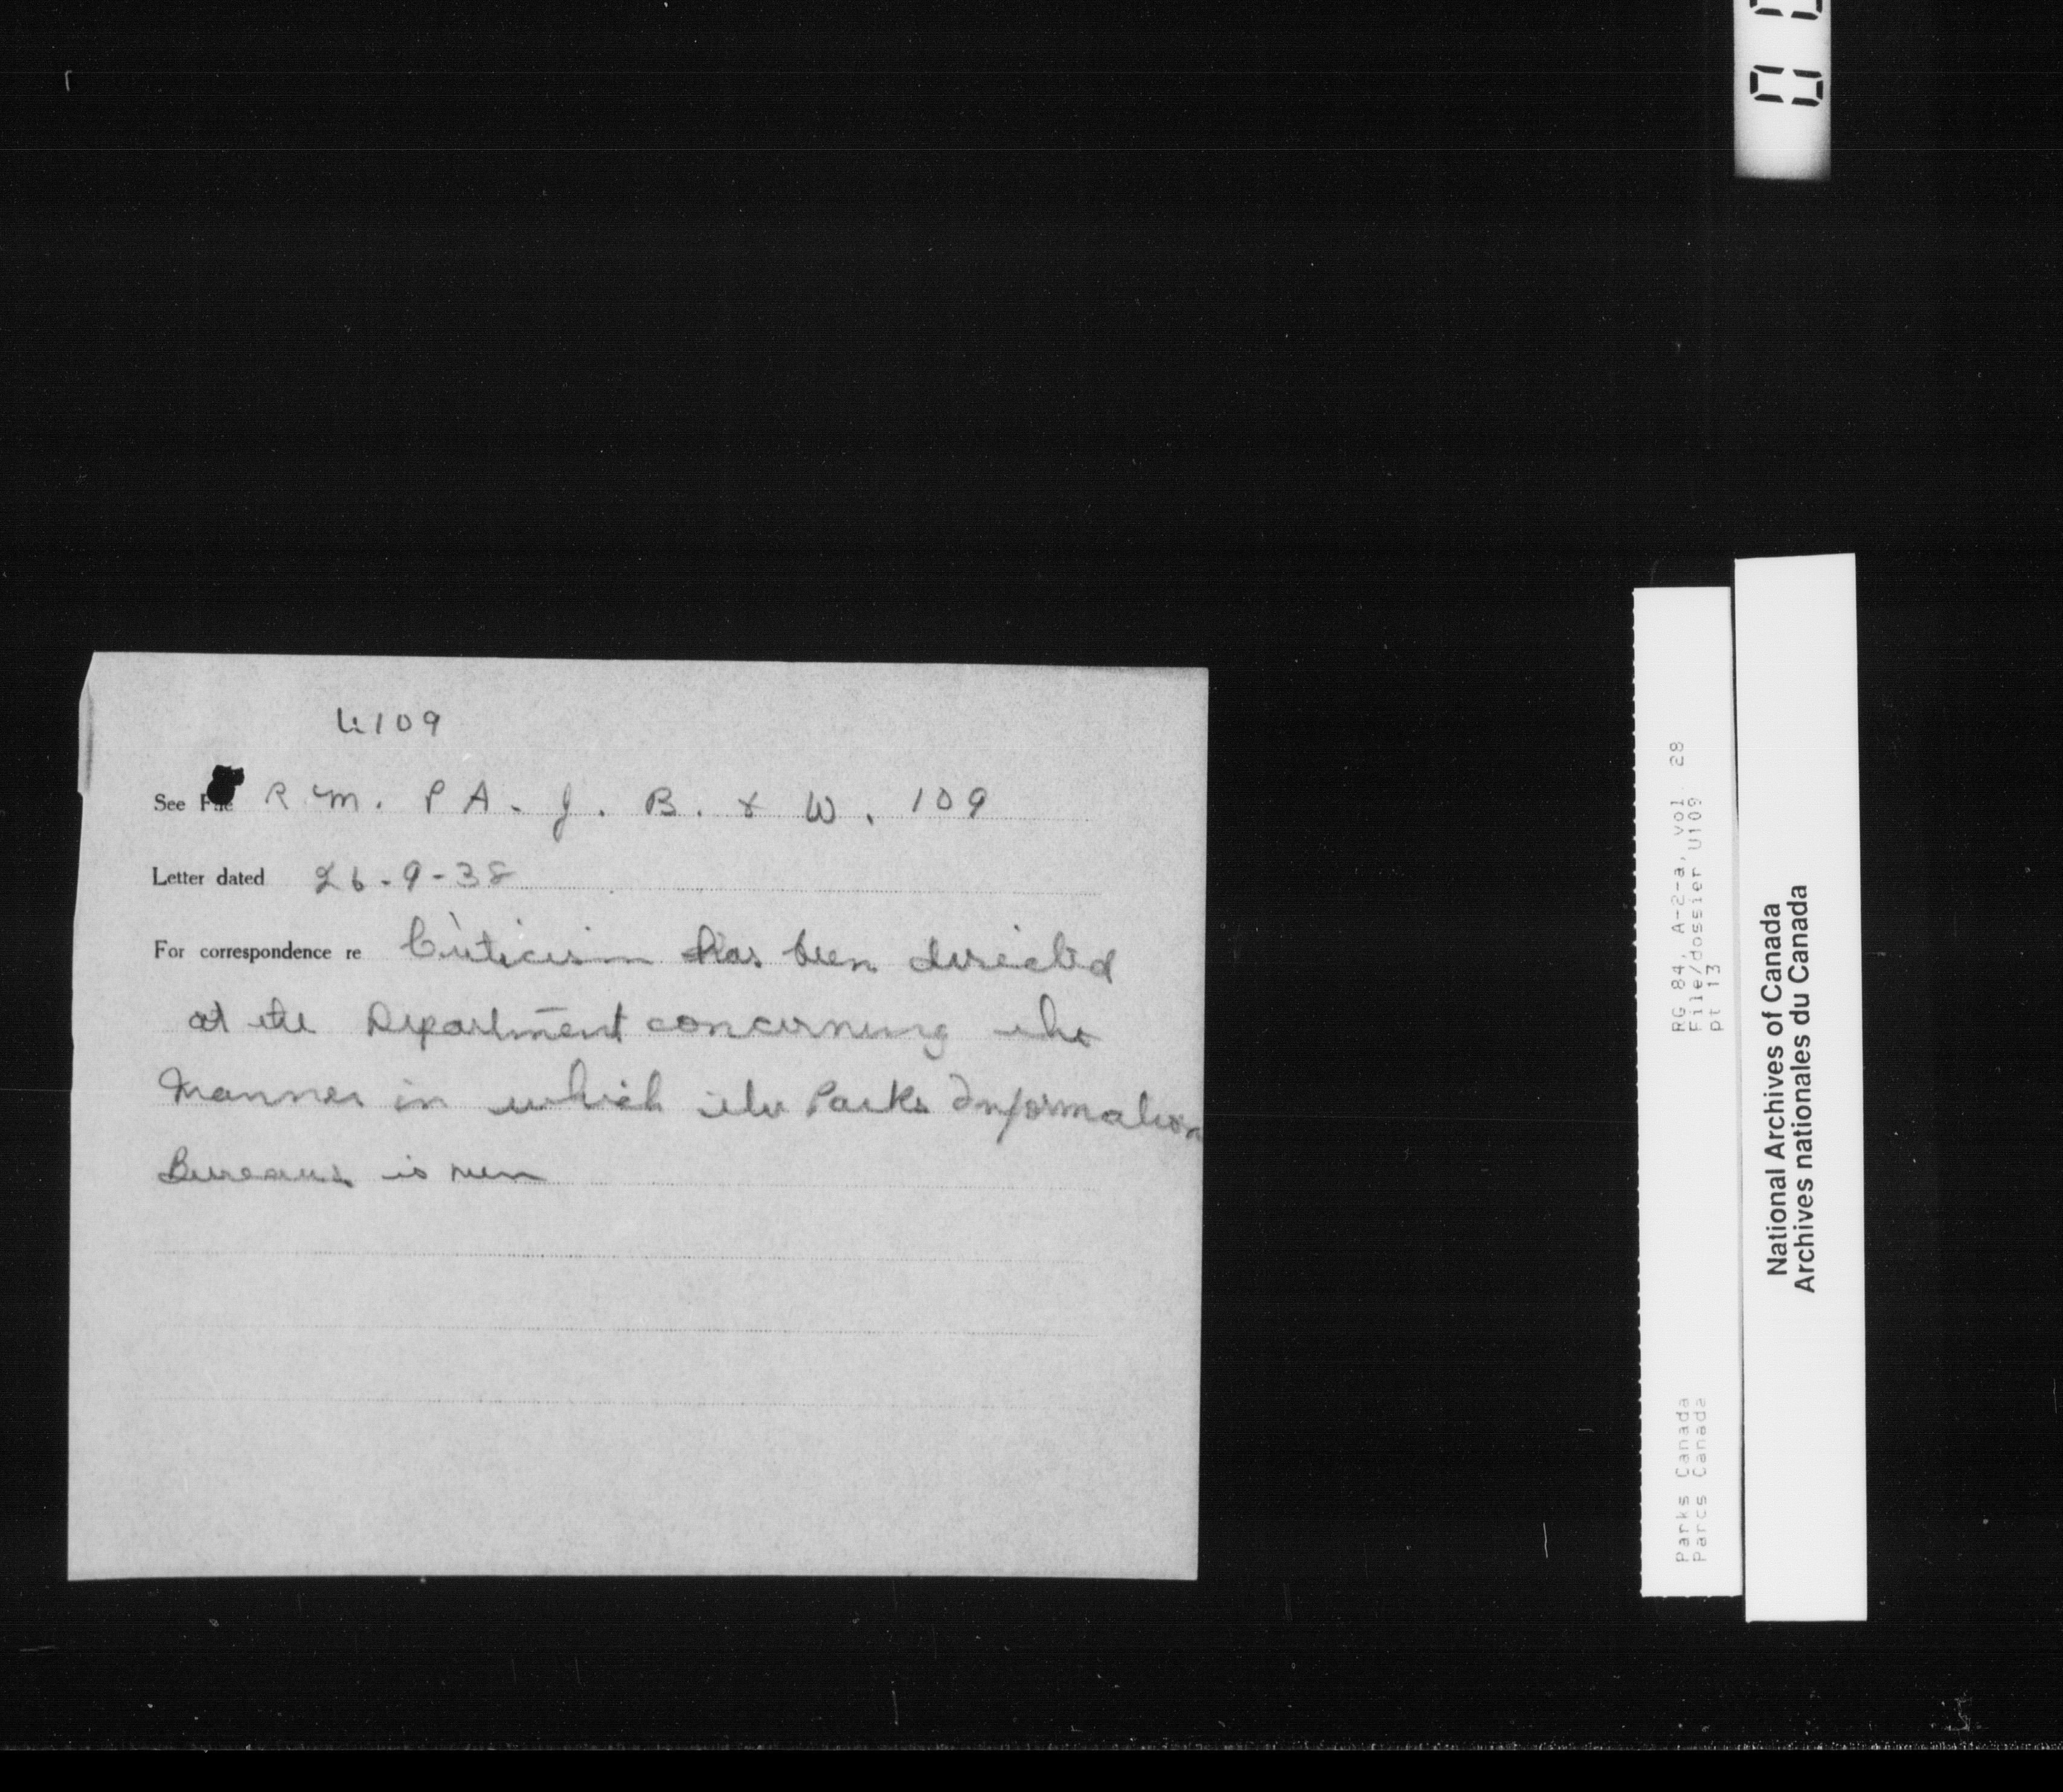 U109
See File R.M. P A. J. B. & W. 109
Letter dated 26-9-38
For correspondence re Criticism has been directed
at the Department concerning the
Manner in which the Parks Information
Bureaus is run
RG 84, A-2-a, vol 28
File/dossier U109
pt 13
Parks Canada
Parcs Canada
National Archives of Canada
Archives nationales du Canada